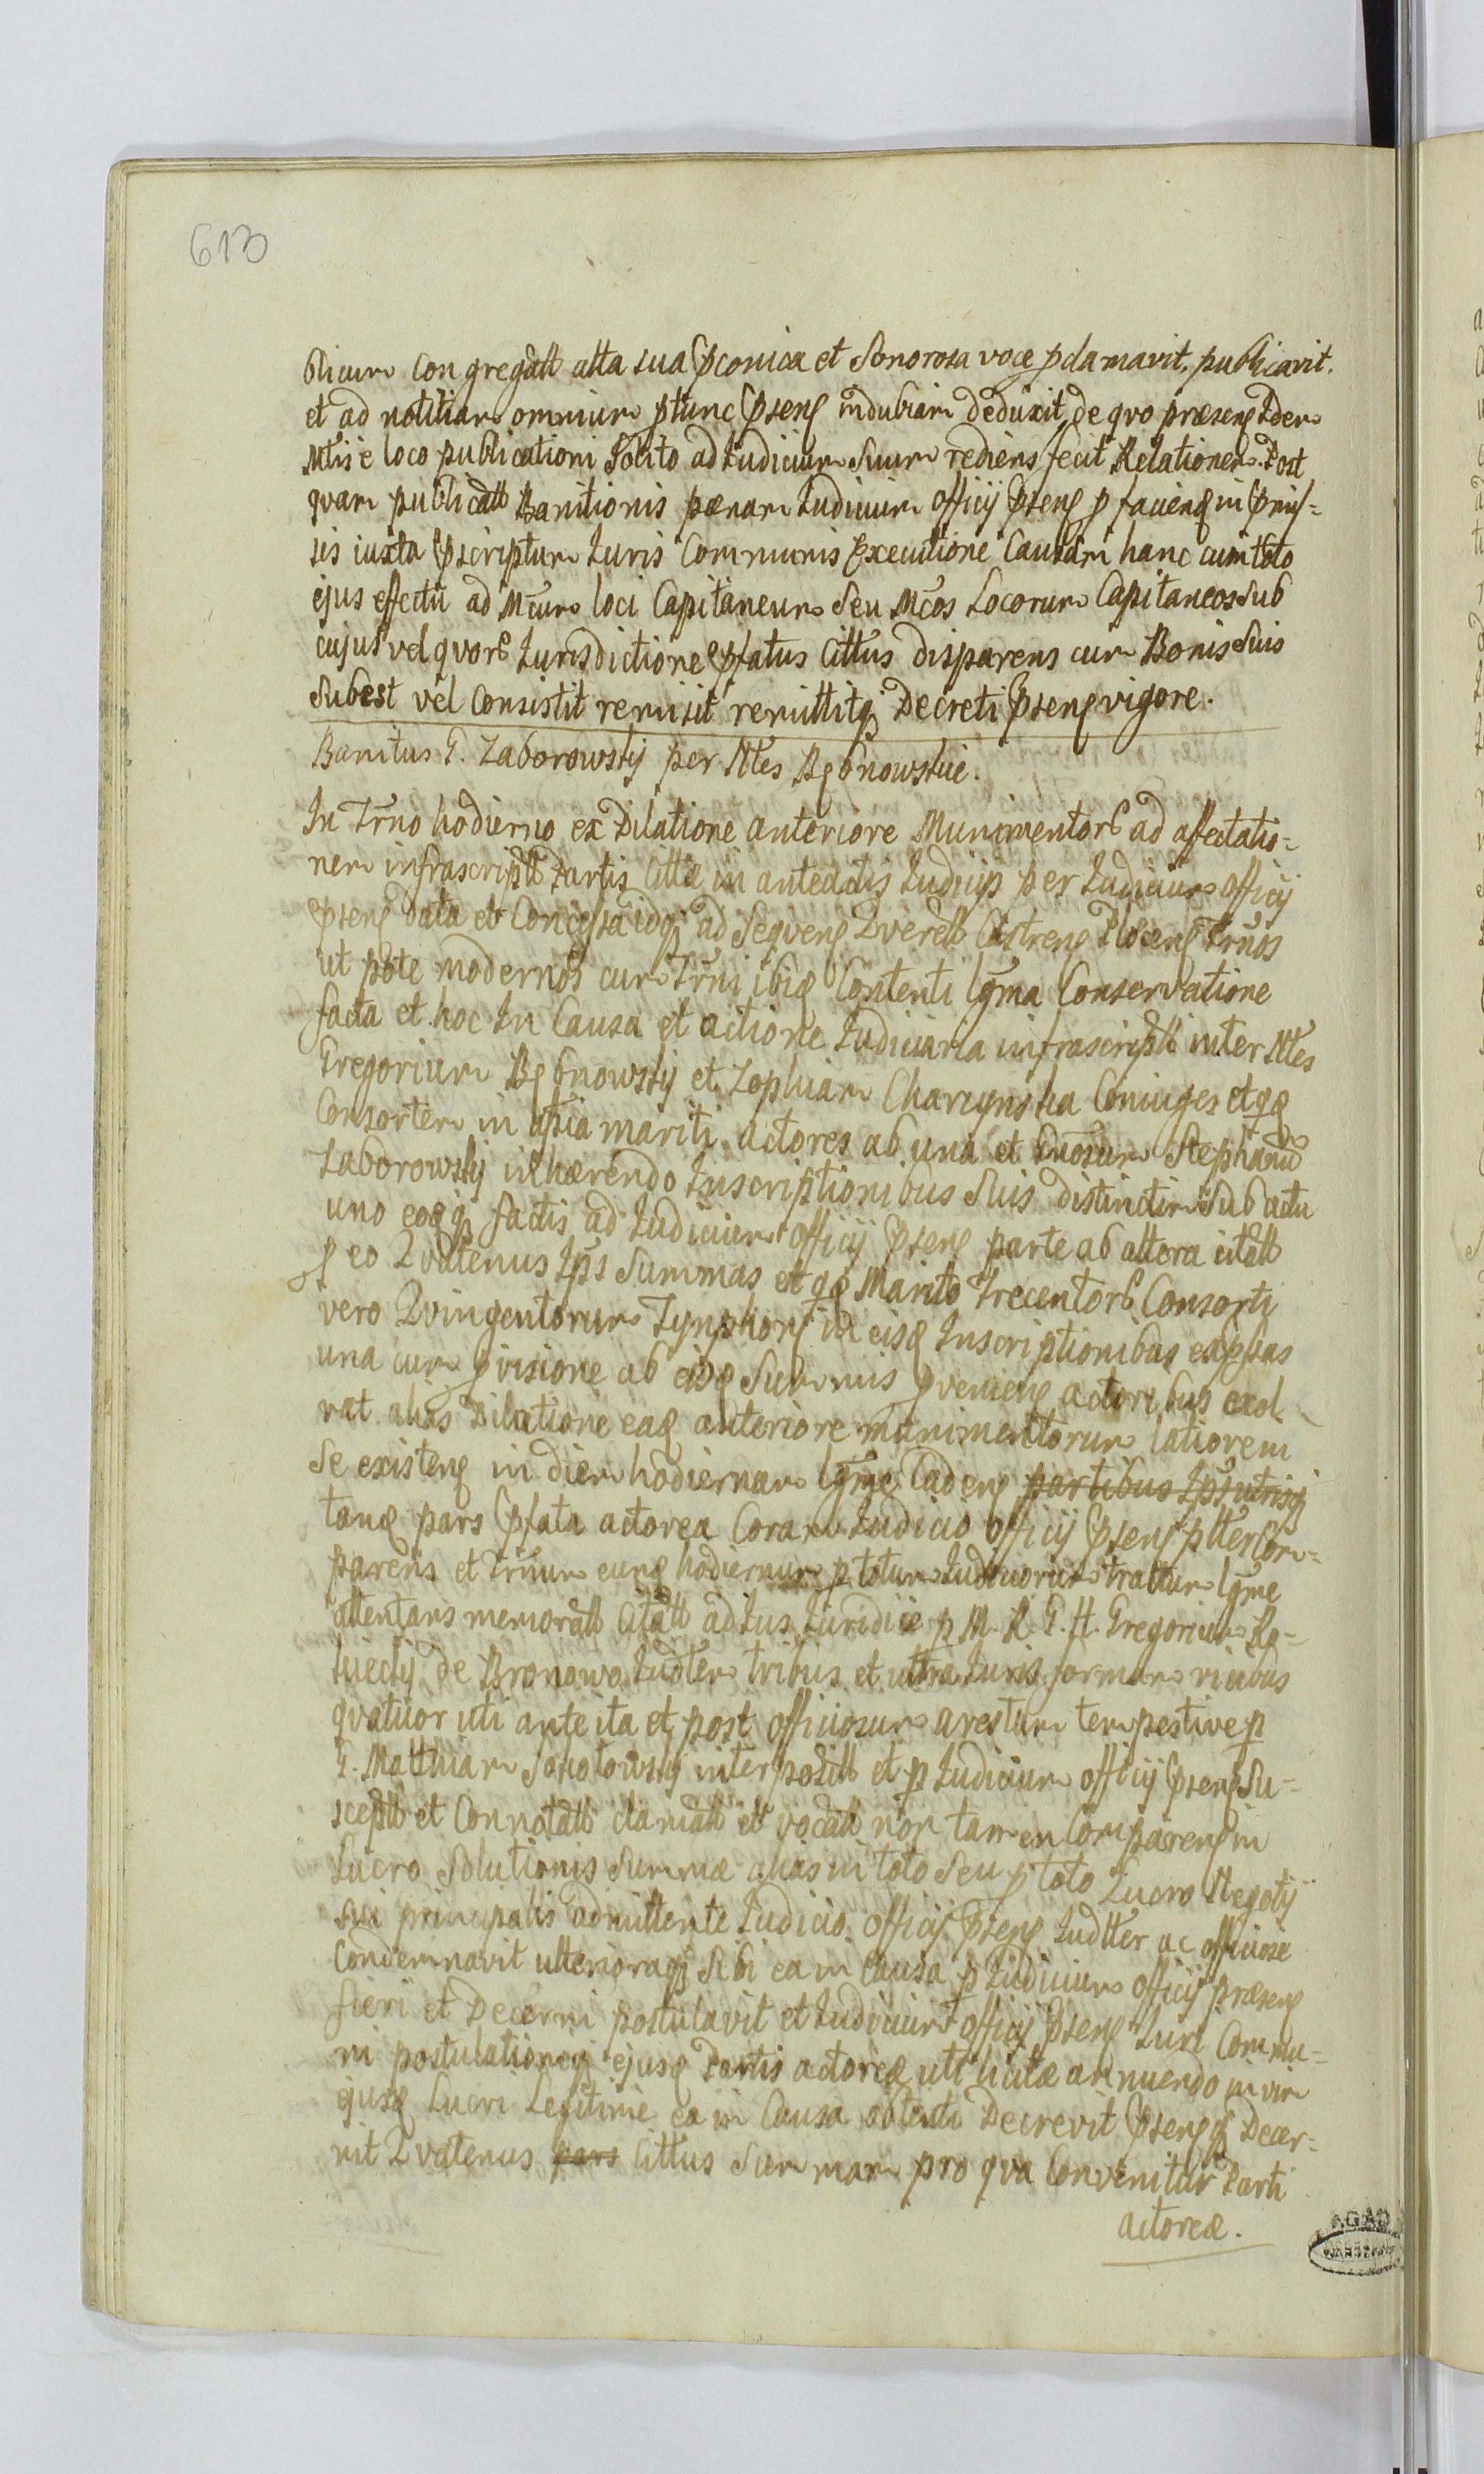 613
blicum Congregatt alta sua pconica et Sonorosa voce pclamavit, publicavit.
et ad notitiam omnium ptunc psens indubiam deduxit, de qvo præsens Idem
Mtis e loco publicationi Solito ad Iudicium Suum rediens fecit Relationem. Post
qvam publicatt Banitionis pænam Iudicium Officij psens p faciens in pmis-
sis iuxta pscriptum Iuris Communis Executione Causam hanc cum toto
ejus effectu ad Mcum loci Capitaneum Seu Mcos Locorum Capitaneos Sub
cujus vel qvors Iurisdictione pfatus Cittus disparens cum Bonis Suis
Subest vel Consistit remisit remittitq Decreti psens vigore.
Banitus G. Zaborowskij per Ntes Bębnowskie.
In Trno hodierno ex Dilatione anteriore Munimentors ad affectatio-
nem infrascriptt Partis Cittæ in anteactis Iudicijs per Iudicium Officij
psens data et Concessa idq ad Seqvens Qverell Castrens Plocens Trnos
ut pote modernos cum Trni ibiq Contenti Lgma Conservatione
facta et hoc In Causa et actione Iudiciaria infrascriptt inter Ntes
Gregorium Bębnowskij et Zophiam Charzynska Coniuges et qq
Consortem in astia mariti actores ab una et Gnosum Stephanu
Zaborowskij inhærendo Inscriptionibus Suis distinctim Sub actu
uno eoqq factis ad Iudicium Officij psens parte ab altera citatt
p eo Qvatenus Ips Summas et qq Marito Trecentors Consorti
vero Qvingentorum Tymphors in eisq Inscriptionibus exppssas
una cum pvisione ab eisq Summis pveniens actoribus exol
vat alias Dilatione eaq anteriore munimentorum latiorem
Se existens in diem hodiernam Lgme Cadens partibus Ips utrisq
tanq pars pfata actorea Coram Iudicio Officij psens pltter Com-
parens et Trnum eunq hodiernum p totum Iudiciorum tractum Lgme
attentans memoratt Citatt ad Ius Iuridice p M. R. G. H. Gregorium Ro-
kiecky de Bronowo Iudter tribus et ultra Iuris formam vicibus
qvatuor uti ante ita et post officiosum arestum tempestive p
G. Matthiam Sokolowskij interpositt et p Iudicium Officij psens Su-
sceptt et Connotatt clamatt et vocatt non tamen Comparens in
Lucro Solutionis Summæ alias in toto Seu p toto Lucro Negotij
Sui principalis admittente Iudicio Officij psens Iudtter ac officiose
Condemnavit ulterioraq Sibi ea in Causa p Iudicium Officij præsens
fieri et Decerni postulavit et Iudicium Officij psens Iuri Commu-
ni postulationiq ejusq Partis actoreæ uti licitæ annuendo in vim
ejusq Lucri Legitime ea in Causa obtenti Decrevit psensq Decer-
nit Qvatenus pars Cittus Summam pro qva Convenitur Parti
actoreæ.
AGAD